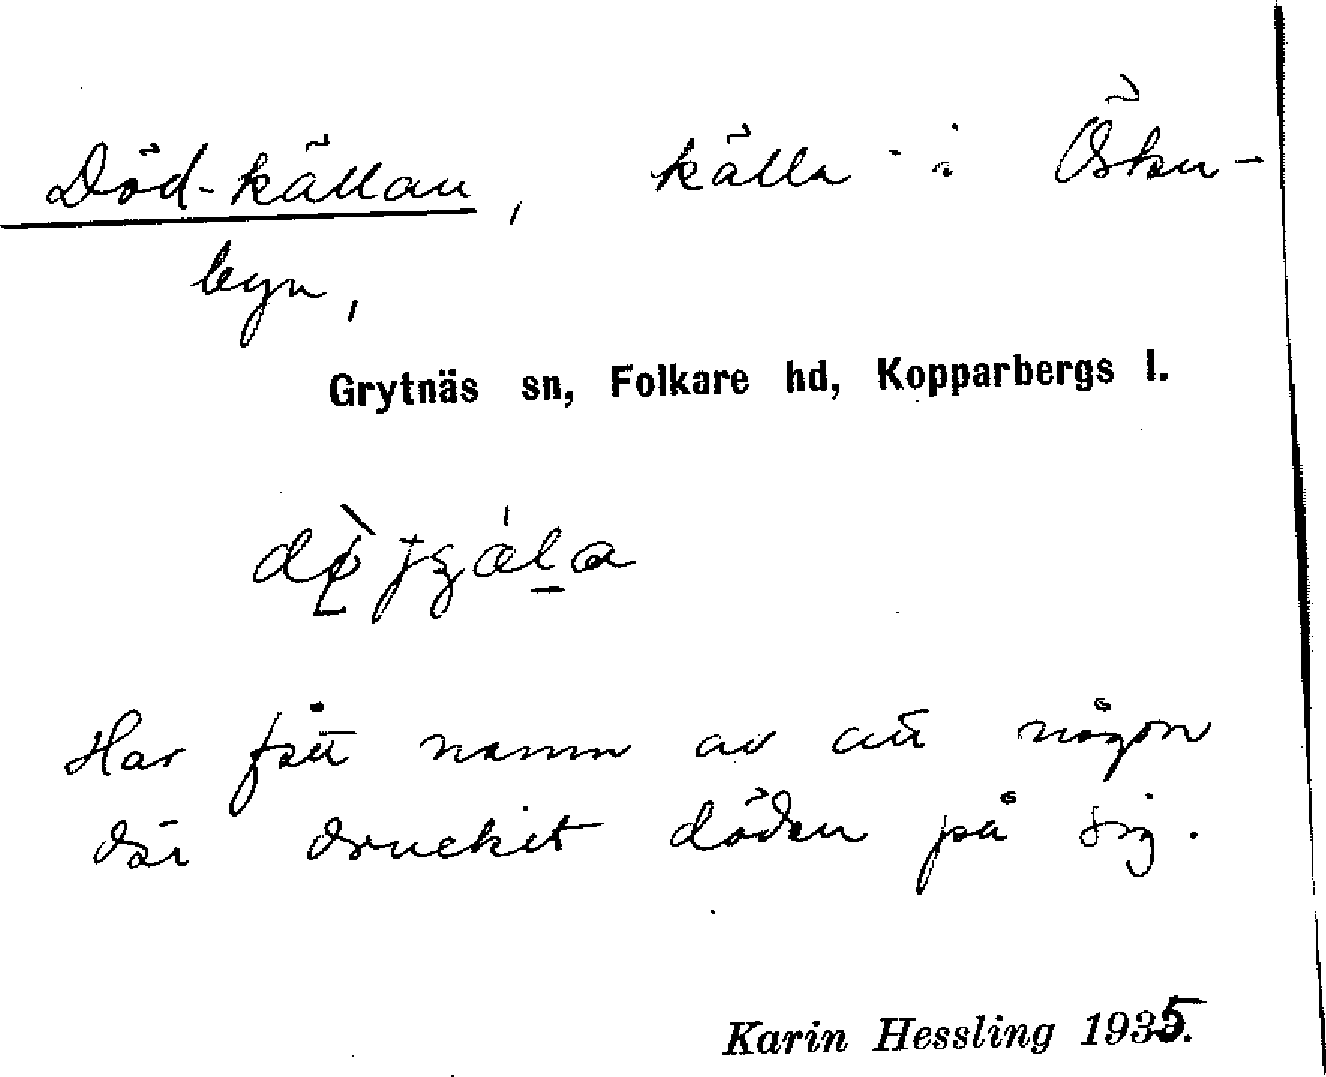 Död-källan, källa i Öster-
byn,
Grytnäs sn, Folkare hd, Kopparbergs l.
Har fått namn av att någon
där druckit döden på sig.
Karin Hessling 1935.